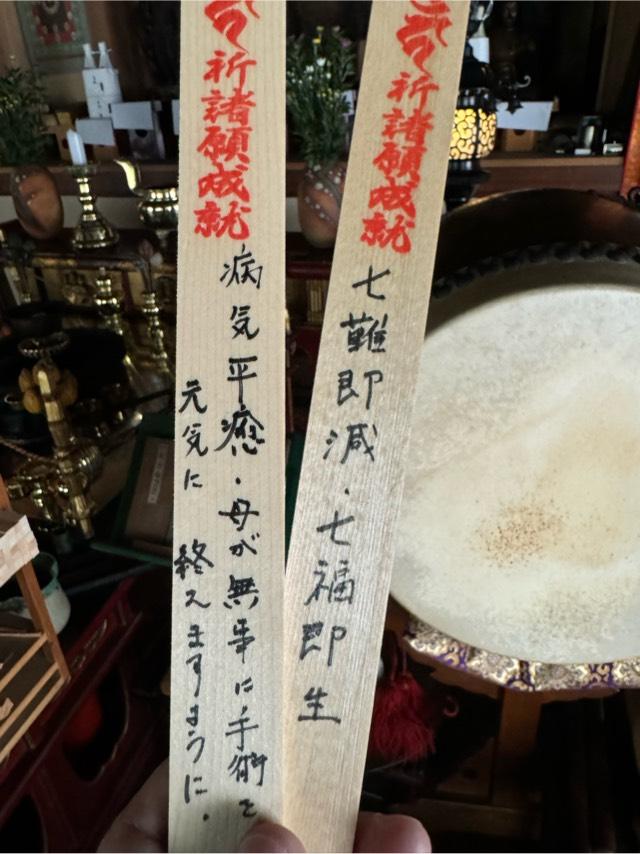 祈諸願成就
病気平癒・母が無事に手術を
元気に 終えますように.
祈諸願成就
七難即減・七福即生